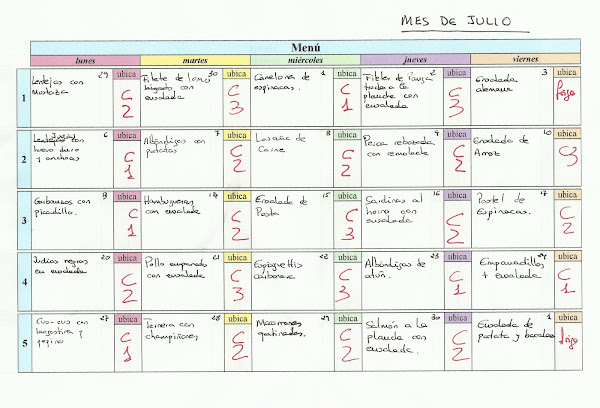 MES DE JULIO
Menú
lunes martes miércoles jueves viernes
1
29 ubica
Lentejas con
Mostaza
C
2
30 ubica
Filete de lomo
con
ensalada
C
3
1 ubica
Canelones de
espinacas.
C
1
2 ubica
Filetes de
a la
plancha con
ensalada
C
3
3 ubica
Ensalada
alemana
2
6 ubica
Judías
con
huevo duro
y anchoas
C
1
7 ubica
Albóndigas con
patatas
C
2
8 ubica
Lasaña de
Carne
C
2
9 ubica
rebozada
con remolacha
C
2
10 ubica
Ensalada de
Arroz
C
3
3
ubica
Garbanzos con
picadillo.
C
1
14 ubica
Hamburguesas
con ensalada
C
2
15 ubica
Ensalada de
Pasta
C
3
16 ubica
Sardinas al
horno con
ensalada
C
2
17 ubica
Pastel de
Espinacas.
C
2
4
20 ubica
Judías negras
en ensalada
C
2
21 ubica
Pollo empanado
con ensalada
C
3
22 ubica
Espaguettis
carbonara
C
3
23 ubica
Albóndigas de
atún.
C
1
24 ubica
Empanadillas
+ ensalada
C
1
5
27 ubica
Cus-cus con
langostinos y
pepino
C
1
28 ubica
Ternera con
champiñones
C
2
29 ubica
Macarrones
gratinados.
C
2
ubica
Salmón a la
plancha con
ensalada.
C
2
1 ubica
Ensalada de
patata y bacalao